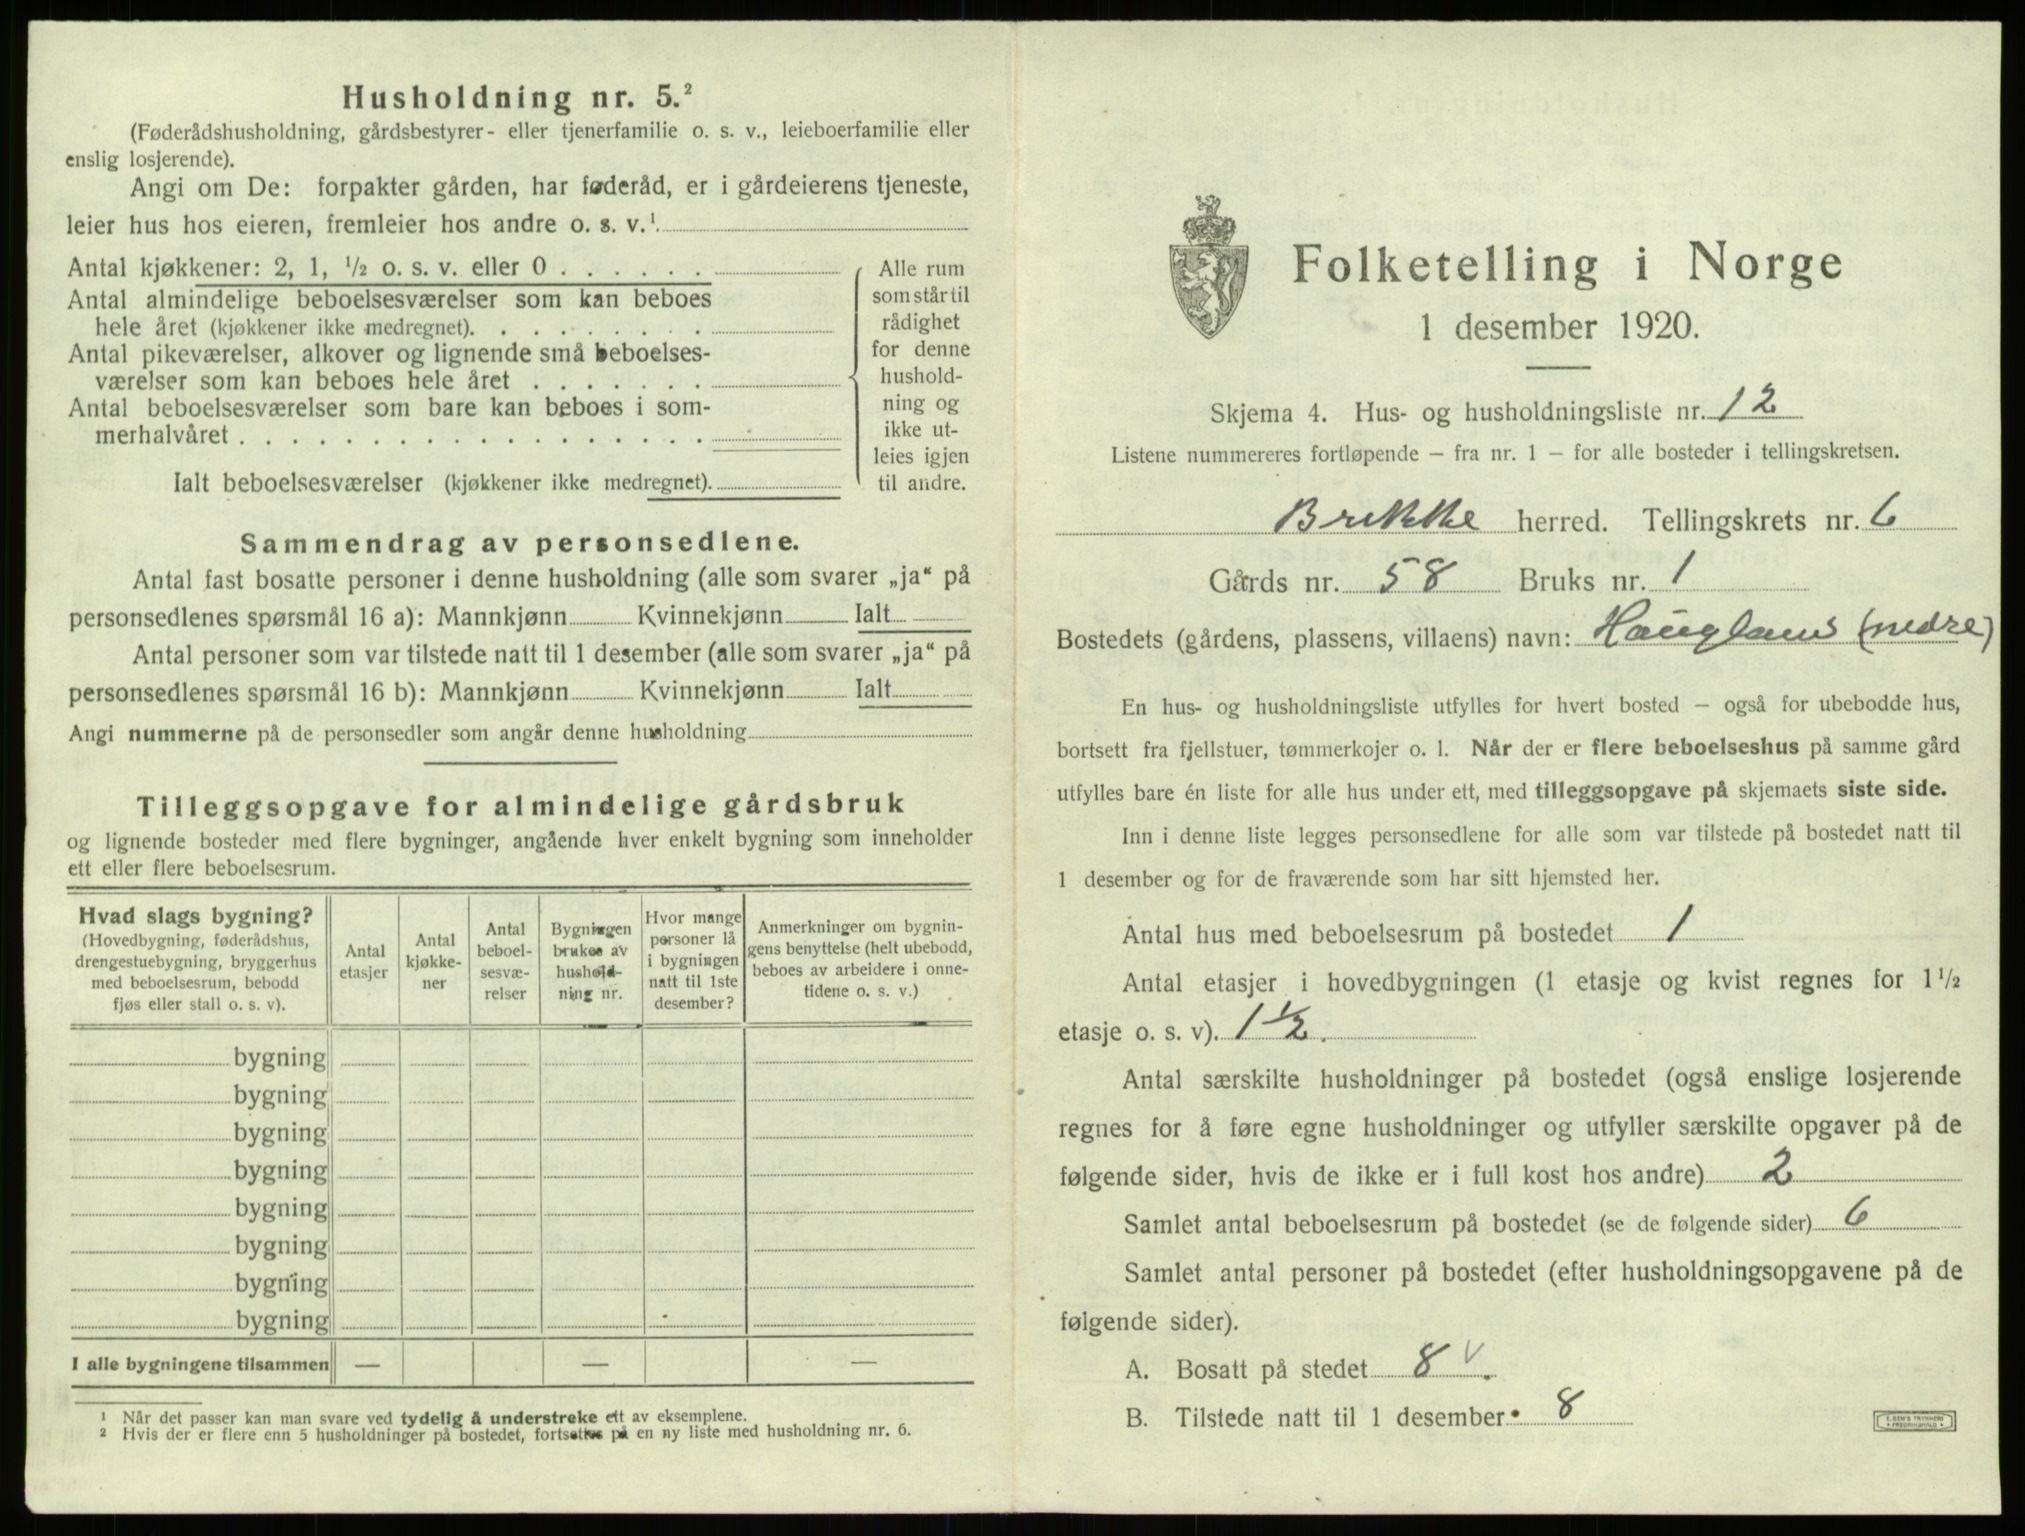 Husholdning nr. 5.²
(Føderådshusholdning, gårdsbestyrer- eller tjenerfamilie o. s. v., leieboerfamilie eller
enslig losjerende).
Angi om De: forpakter gården, har føderåd, er i gårdeierens tjeneste,
leier hus hos eieren, fremleier hos andre o. s. v.¹
Antal kjøkkener: 2, 1, ½ o. s. v. eller 0 . . . . . .
Antal almindelige beboelsesværelser som kan beboes
hele året (kjøkkener ikke medregnet). . . . . . . . .
Antal pikeværelser, alkover og lignende små beboelses-
værelser som kan beboes hele året . . . . . . .
Antal beboelsesværelser som bare kan beboes i som-
merhalvåret . . . . . . . . . . . . . . . . . .
Ialt beboelsesværelser (kjøkkener ikke medregnet).
Alle rum
som står til
rådighet
for denne
hushold-
ning og
ikke ut-
leies igjen
til andre.
Sammendrag av personsedlene.
Antal fast bosatte personer i denne husholdning (alle som svarer „ja“ på
personsedlenes spørsmål 16 a): Mannkjønn Kvinnekjønn Ialt
Antal personer som var tilstede natt til 1 desember (alle som svarer „ja“ på
personsedlenes spørsmål 16 b): Mannkjønn Kvinnekjønn Ialt
Angi nummerne på de personsedler som angår denne husholdning
Tilleggsopgave for almindelige gårdsbruk
og lignende bosteder med flere bygninger, angående hver enkelt bygning som inneholder
ett eller flere beboelsesrum.
Hvad slags bygning?
(Hovedbygning, føderådshus,
drengestuebygning, bryggerhus
med beboelsesrum, bebodd
fjøs eller stall o. s. v).
Antal
etasjer
Antal
kjøkke-
ner
Antal
beboel-
sesvæ-
relser
Bygningen
brukes av
hushold-
ning nr.
Hvor mange
personer lå
i bygningen
natt til 1ste
desember?
Anmerkninger om bygnin-
gens benyttelse (helt ubebodd,
beboes av arbeidere i onne-
tidene o. s. v.)
bygning
bygning
bygning
bygning
bygning
bygning
bygning
bygning
I alle bygningene tilsammen — — —
¹ Når det passer kan man svare ved tydelig å understreke ett av eksemplene.
² Hvis der er flere enn 5 husholdninger på bostedet, fortsettes på en ny liste med husholdning nr. 6.
Folketelling i Norge
1 desember 1920.
Skjema 4. Hus- og husholdningsliste nr. 12
Listene nummereres fortløpende — fra nr. 1 — for alle bosteder i tellingskretsen.
Brekke herred. Tellingskrets nr. 6
Gårds nr. 58 Bruks nr. 1
Bostedets (gårdens, plassens, villaens) navn: Haugland (nedre)
En hus- og husholdningsliste utfylles for hvert bosted — også for ubebodde hus,
bortsett fra fjellstuer, tømmerkojer o. l. Når der er flere beboelseshus på samme gård
utfylles bare én liste for alle hus under ett, med tilleggsopgave på skjemaets siste side.
Inn i denne liste legges personsedlene for alle som var tilstede på bostedet natt til
1 desember og for de fraværende som har sitt hjemsted her.
Antal hus med beboelsesrum på bostedet 1
Antal etasjer i hovedbygningen (1 etasje og kvist regnes for 1½
etasje o. s. v). 1½.
Antal særskilte husholdninger på bostedet (også enslige losjerende
regnes for å føre egne husholdninger og utfyller særskilte opgaver på de
følgende sider, hvis de ikke er i full kost hos andre) 2
Samlet antal beboelsesrum på bostedet (se de følgende sider) 6
Samlet antal personer på bostedet (efter husholdningsopgavene på de
følgende sider).
A. Bosatt på stedet 8 v.
B. Tilstede natt til 1 desember 8